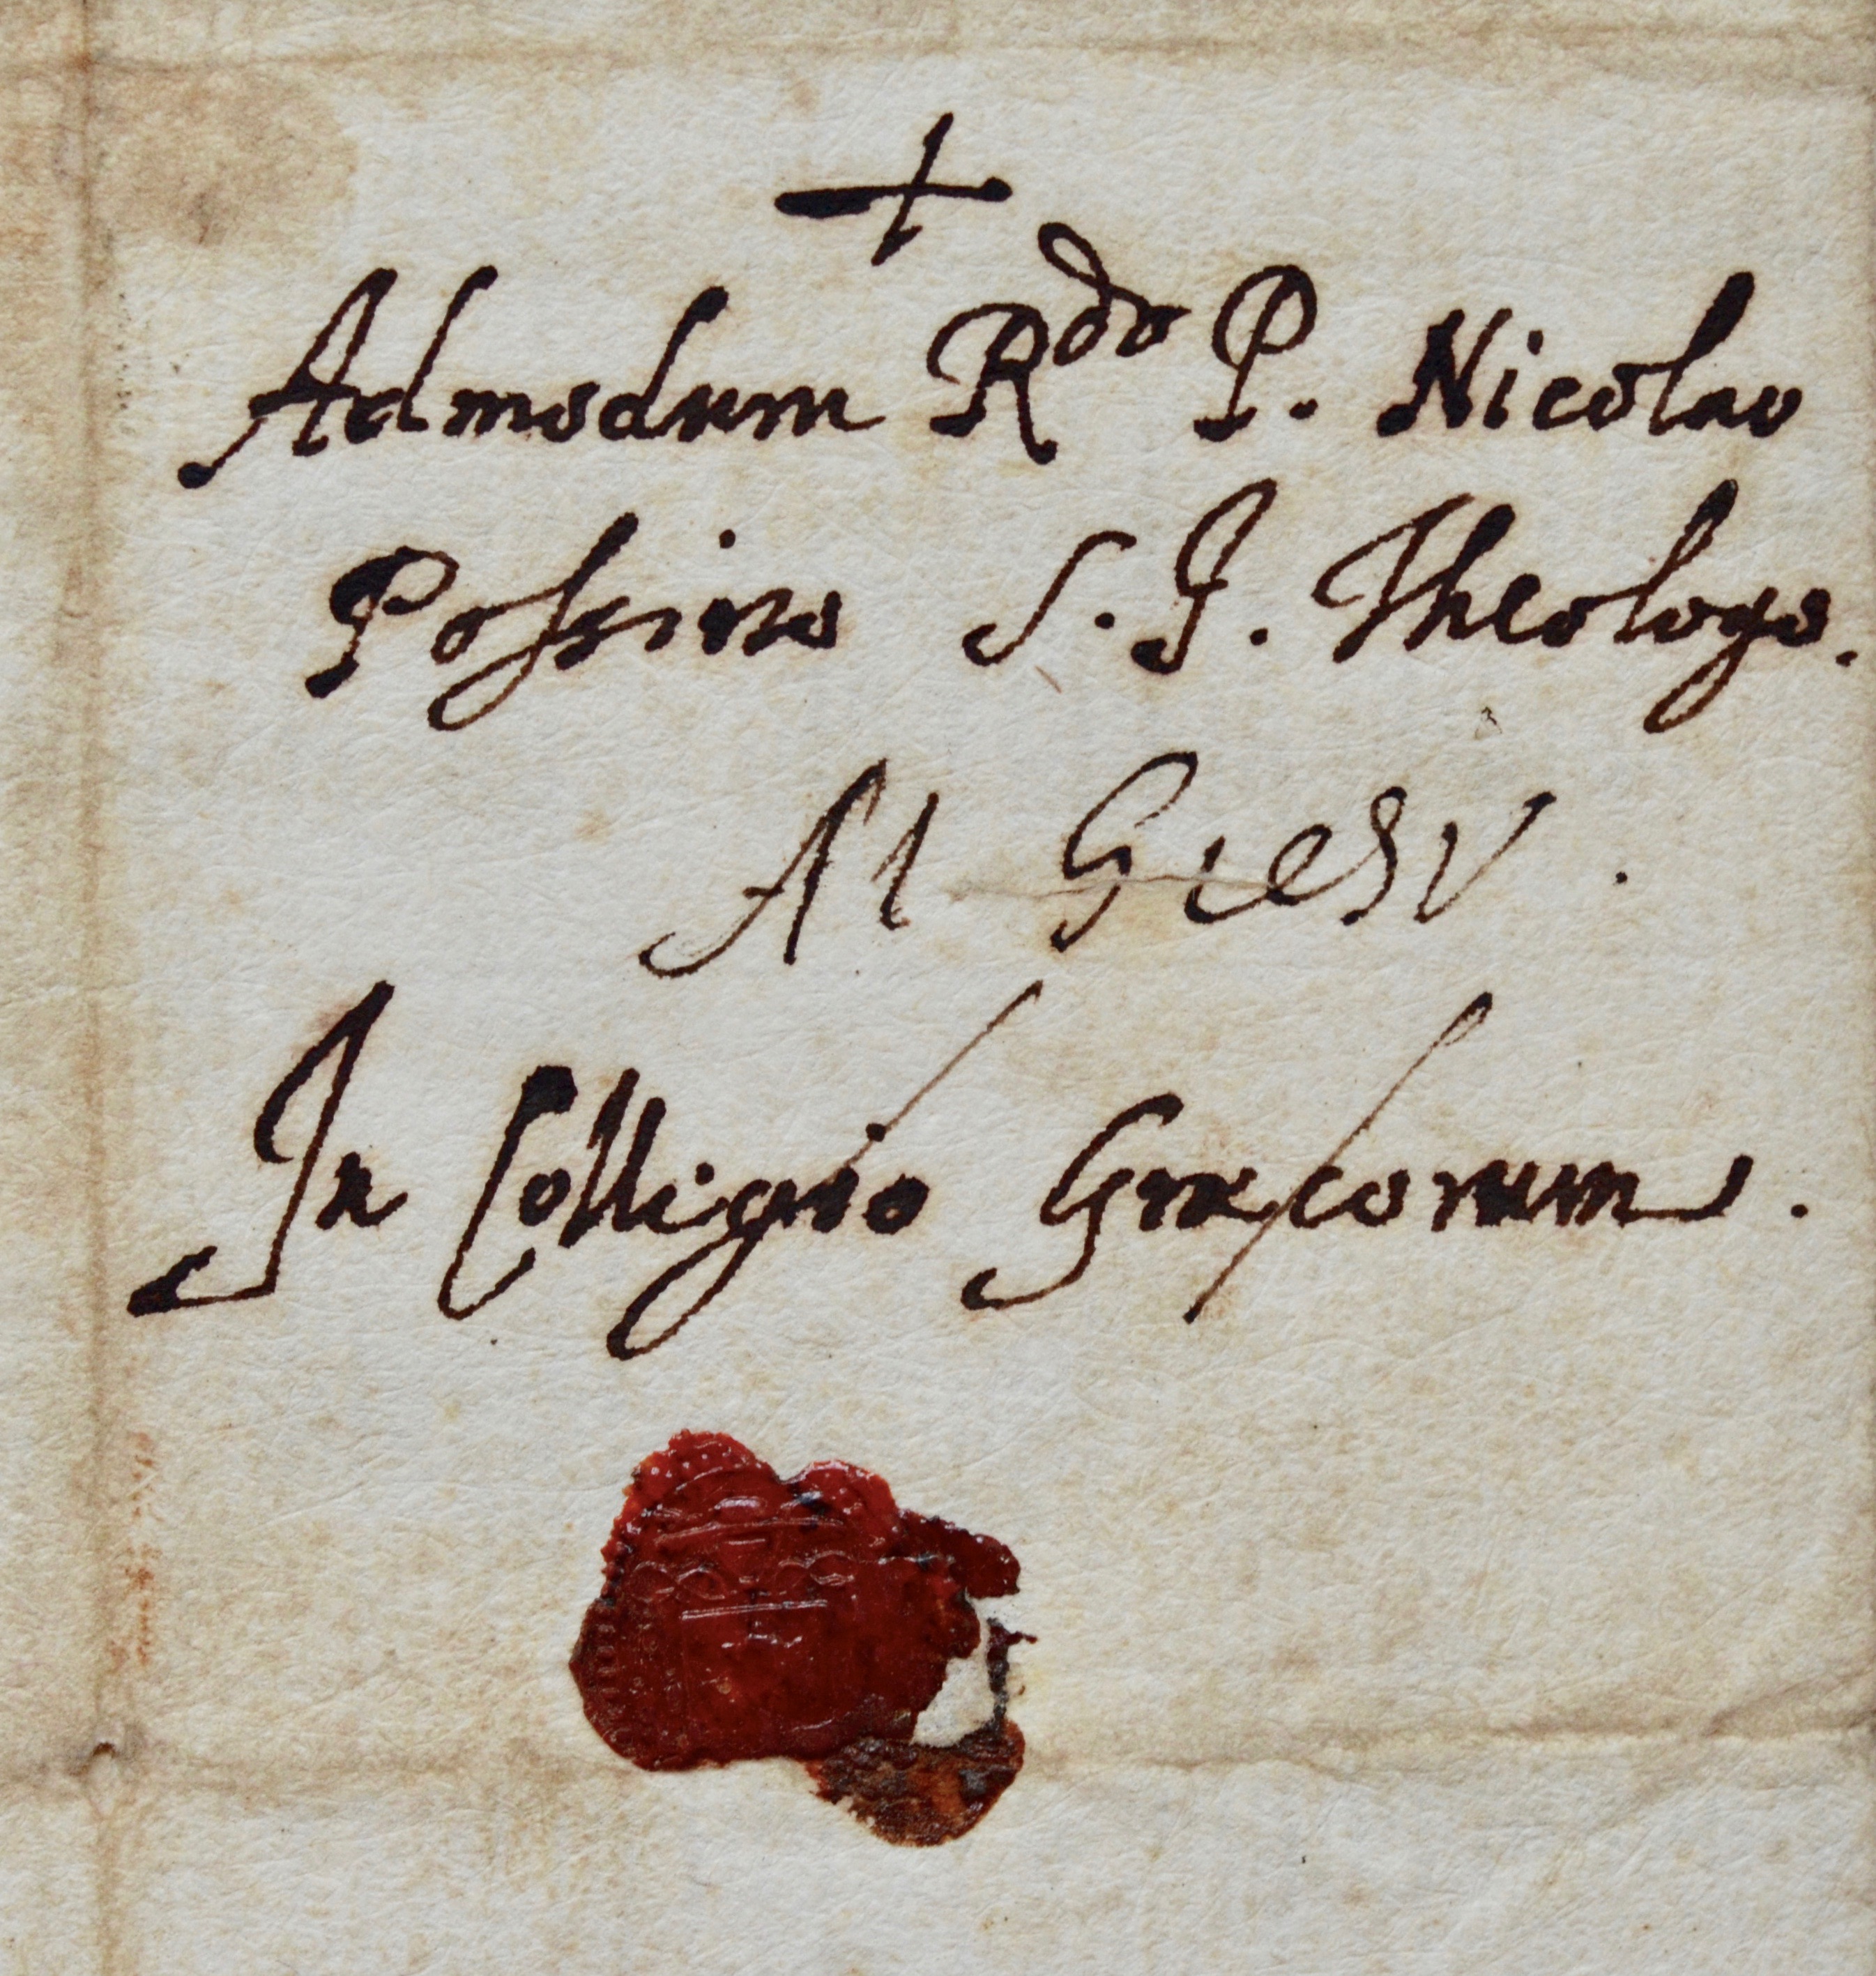 +
Admodum Rdo P. Nicolao
Possino S. J. Theologo.
Al Giesu.
In Collegio Græcorum.